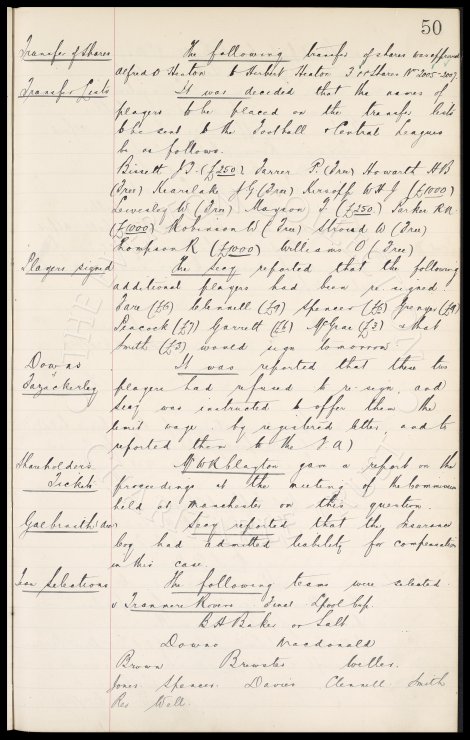 50
Transfer of Shares The following transfer of shares was approved
Alfred D Heaton to Herbert Heaton 3 Shares No 2005-2007.
Transfer Lists It was decided that the names of
players to be placed on the transfer lists
to be sent to the Football & Central Leagues
be as follows.
Bissett J.T. (£250) Farrer P. (Free) Howarth H B
(Free) Kearslake J G (Free) Kirsopp W H J (£1000)
Leversley W (Free) Mayson T (£250) Parker R N.
(£1000) Robinson W (Free) Stroud W (Free)
Thompson R (£1000) Williams O (Free)
Players signed The Secy reported that the following
additional players had been re-signed.
Fare (£6) Clennell (£9) Spencer (£6) Grenyer (£9)
Peacock (£7) Garrett (£6) McGrae (£3) & that
Smith (£3) would sign tomorrow
Downs & Fazackerley It was reported that these two
players had refused to re-sign, and
Secy was instructed to offer them the
limit wage. by registered letter, and to
reported them to the F A)
Shareholders Tickets Mr W R Clayton gave a report on the
proceedings at the meeting of the Commission
held at Manchester on this question.
Galbraith's Secy reported that the Insurance
Coy had admitted liability for compensation
in this case.
Team Selections The following teams were selected.
v Tranmere Rovers Final Lpool Cup.
B A Baker or Salt
Downs Macdonald
Brown Brewster Weller.
Jones Spencer Davies Clennell Smith
Res Wall.